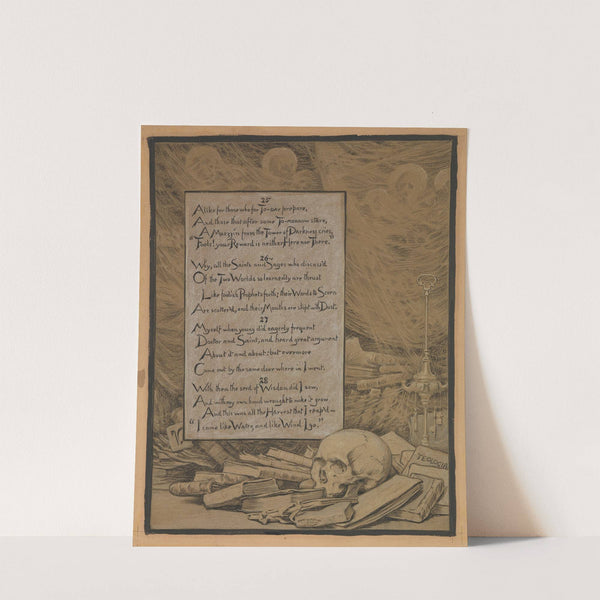 25
Alike for those who for To-day prepare,
And those that after some To-morrow stare,
A Muezzin from the Tower of Darkness cries,
"Fools! your Reward is neither Here nor There."
26
Why, all the Saints and Sages who discuss'd
Of the Two Worlds so learnedly are thrust
Like foolish Prophets forth; their Words to Scorn
Are scatter'd, and their Mouths are stopt with Dust.
27
Myself when young did eagerly frequent
Doctor and Saint, and heard great argument
About it and about: but evermore
Came out by the same door where in I went.
28
With them the seed of Wisdom did I sow,
And with my own hand wrought to make it grow
And this was all the Harvest that I reap'd—
"I came like Water, and like Wind I go."
TEOLOGIA